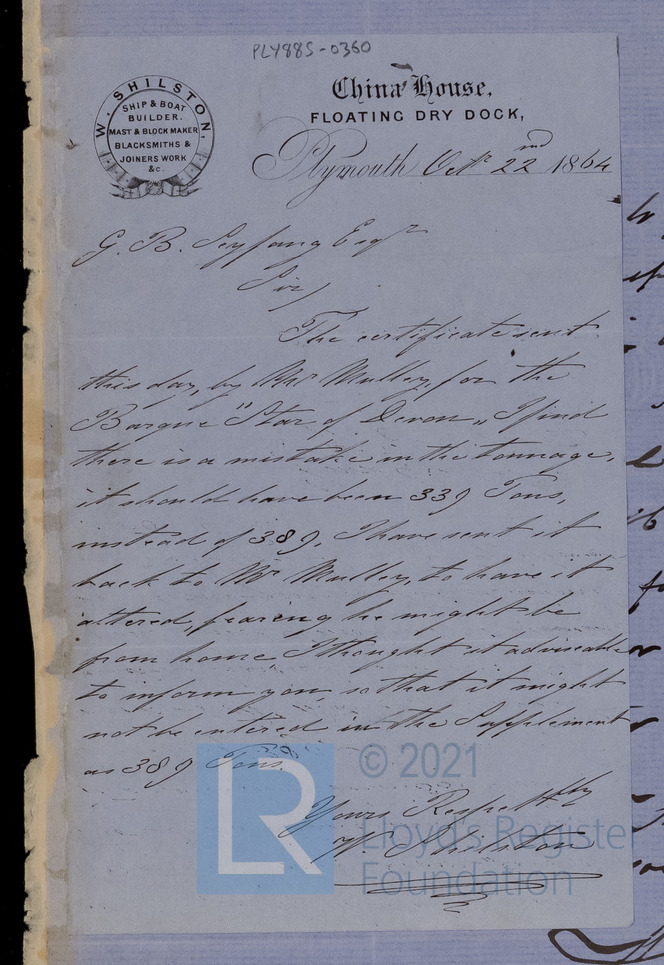 PLY885-0360
W. SHILSTON,
SHIP & BOAT
BUILDER.
MAST & BLOCK MAKER
BLACKSMITHS &
JOINERS WORK
&c.
China House,
FLOATING DRY DOCK,
Plymouth Octr 22nd 1864
G. B. Seyfang Esqr
Sir,
The certificate sent
this day, by Mr Mulley, for the
Barque "Star of Devon" I find
there is a mistake in the tonnage,
it should have been 339 Tons,
instead of 389. I have sent it
back to Mr Mulley, to have it
altered, fearing he might be
from home, I thought it adviseable
to inform you so that it might
not be entered in the Supplement
as 389 Tons.
Yours Respectfly
W. Shilston
LR
© 2021
Lloyd's Registe
Foundation